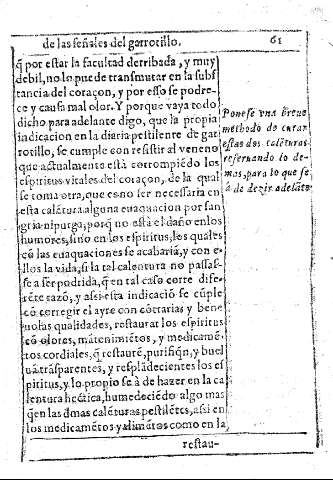 de las señales del garrotillo. 61
q̃ por estar la facultad derribada, y muy
debil, no lo puede transmutar en la subs
tancia del coraçon, y por esso se podre-
ce y causa mal olor. Y porque vaya todo
dicho para adelante digo, que la propia
indicacion en la diaria pestilente de gar
rotillo, se cumple con resistir al veneno
que actualmente està corrompiẽdo los
espiritus vitales del coraçon, de la qual
se toma otra, que es no ser necessaria en
esta calẽtura alguna euaquacion por san
gria ni purga, porq̃ no està el daño en los
humores, sino en los espiritus, los quales
cõ las euaquaciones se acabariã, y con e-
llos la vida, si la tal calentura no passas-
se a ser podrida, q̃ en tal caso corre dife-
rẽte razõ, y assi esta indicaciõ se cũple
cõ corregir el ayre con cõtrarias y bene
uolas qualidades, restaurar los espiritus
cõ olores, mãtenimiẽtos, y medicamẽ-
tos cordiales, q̃ restaurẽ, purifiqñ, y buel
uã trasparentes, y resplãdecientes los es
piritus, y lo propio se à de hazer en la ca
lentura hectica, humedeciẽdo algo mas
q̃ en las dmas calẽturas pestilẽtes, assi en
los medicamẽtos y alimẽtos como en la
restau-
Ponese vna breue
methodo de curar
estas dos calẽturas
reseruando lo de-
mas, para lo que se
à de dezir adelãte